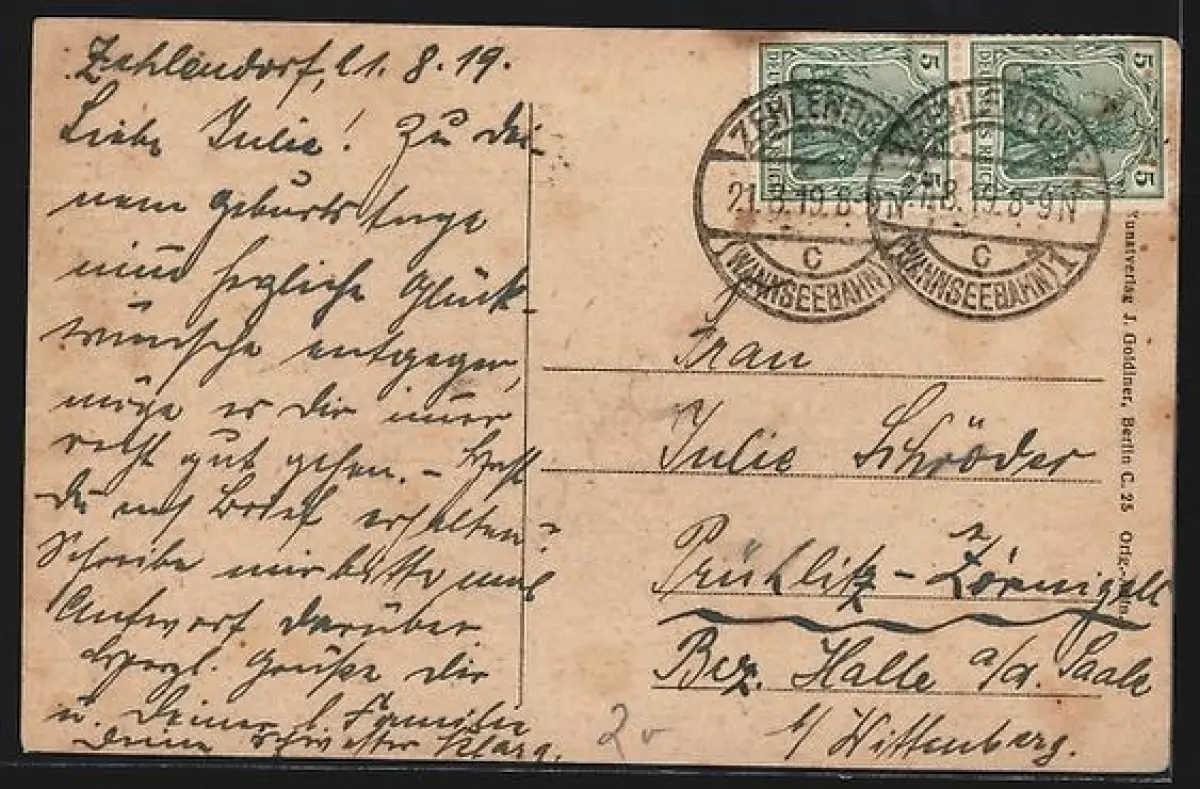 Zehlendorf, 21. 8. 19.
Liebe Julie! Zu Dei-
nem Geburtstage
nim herzliche Glück-
wünsche entgegen,
möge es Dir immer
recht gut gehen. – Hast
Du m/ Brief erhalten?
Schreibe mir bitte mal
Antwort darüber.
Herzl. Grüße Dir
u. Deiner l. Familie
Deine Schwester Klara.
5 DEUTSCHES REICH 5
5 DEUTSCHES REICH 5
ZEHLENDORF
21.8.19.8-9N
C
(WANNSEEBAHN)
ZEHLENDORF
21.8.19.8-9N
C
(WANNSEEBAHN) 1
Frau
Julie Schröder
Prühlitz - Zörnigall
Bez. Halle a/d. Saale
b/ Wittenberg.
Kunstverlag J. Goldiner, Berlin C. 25 Orig.
2